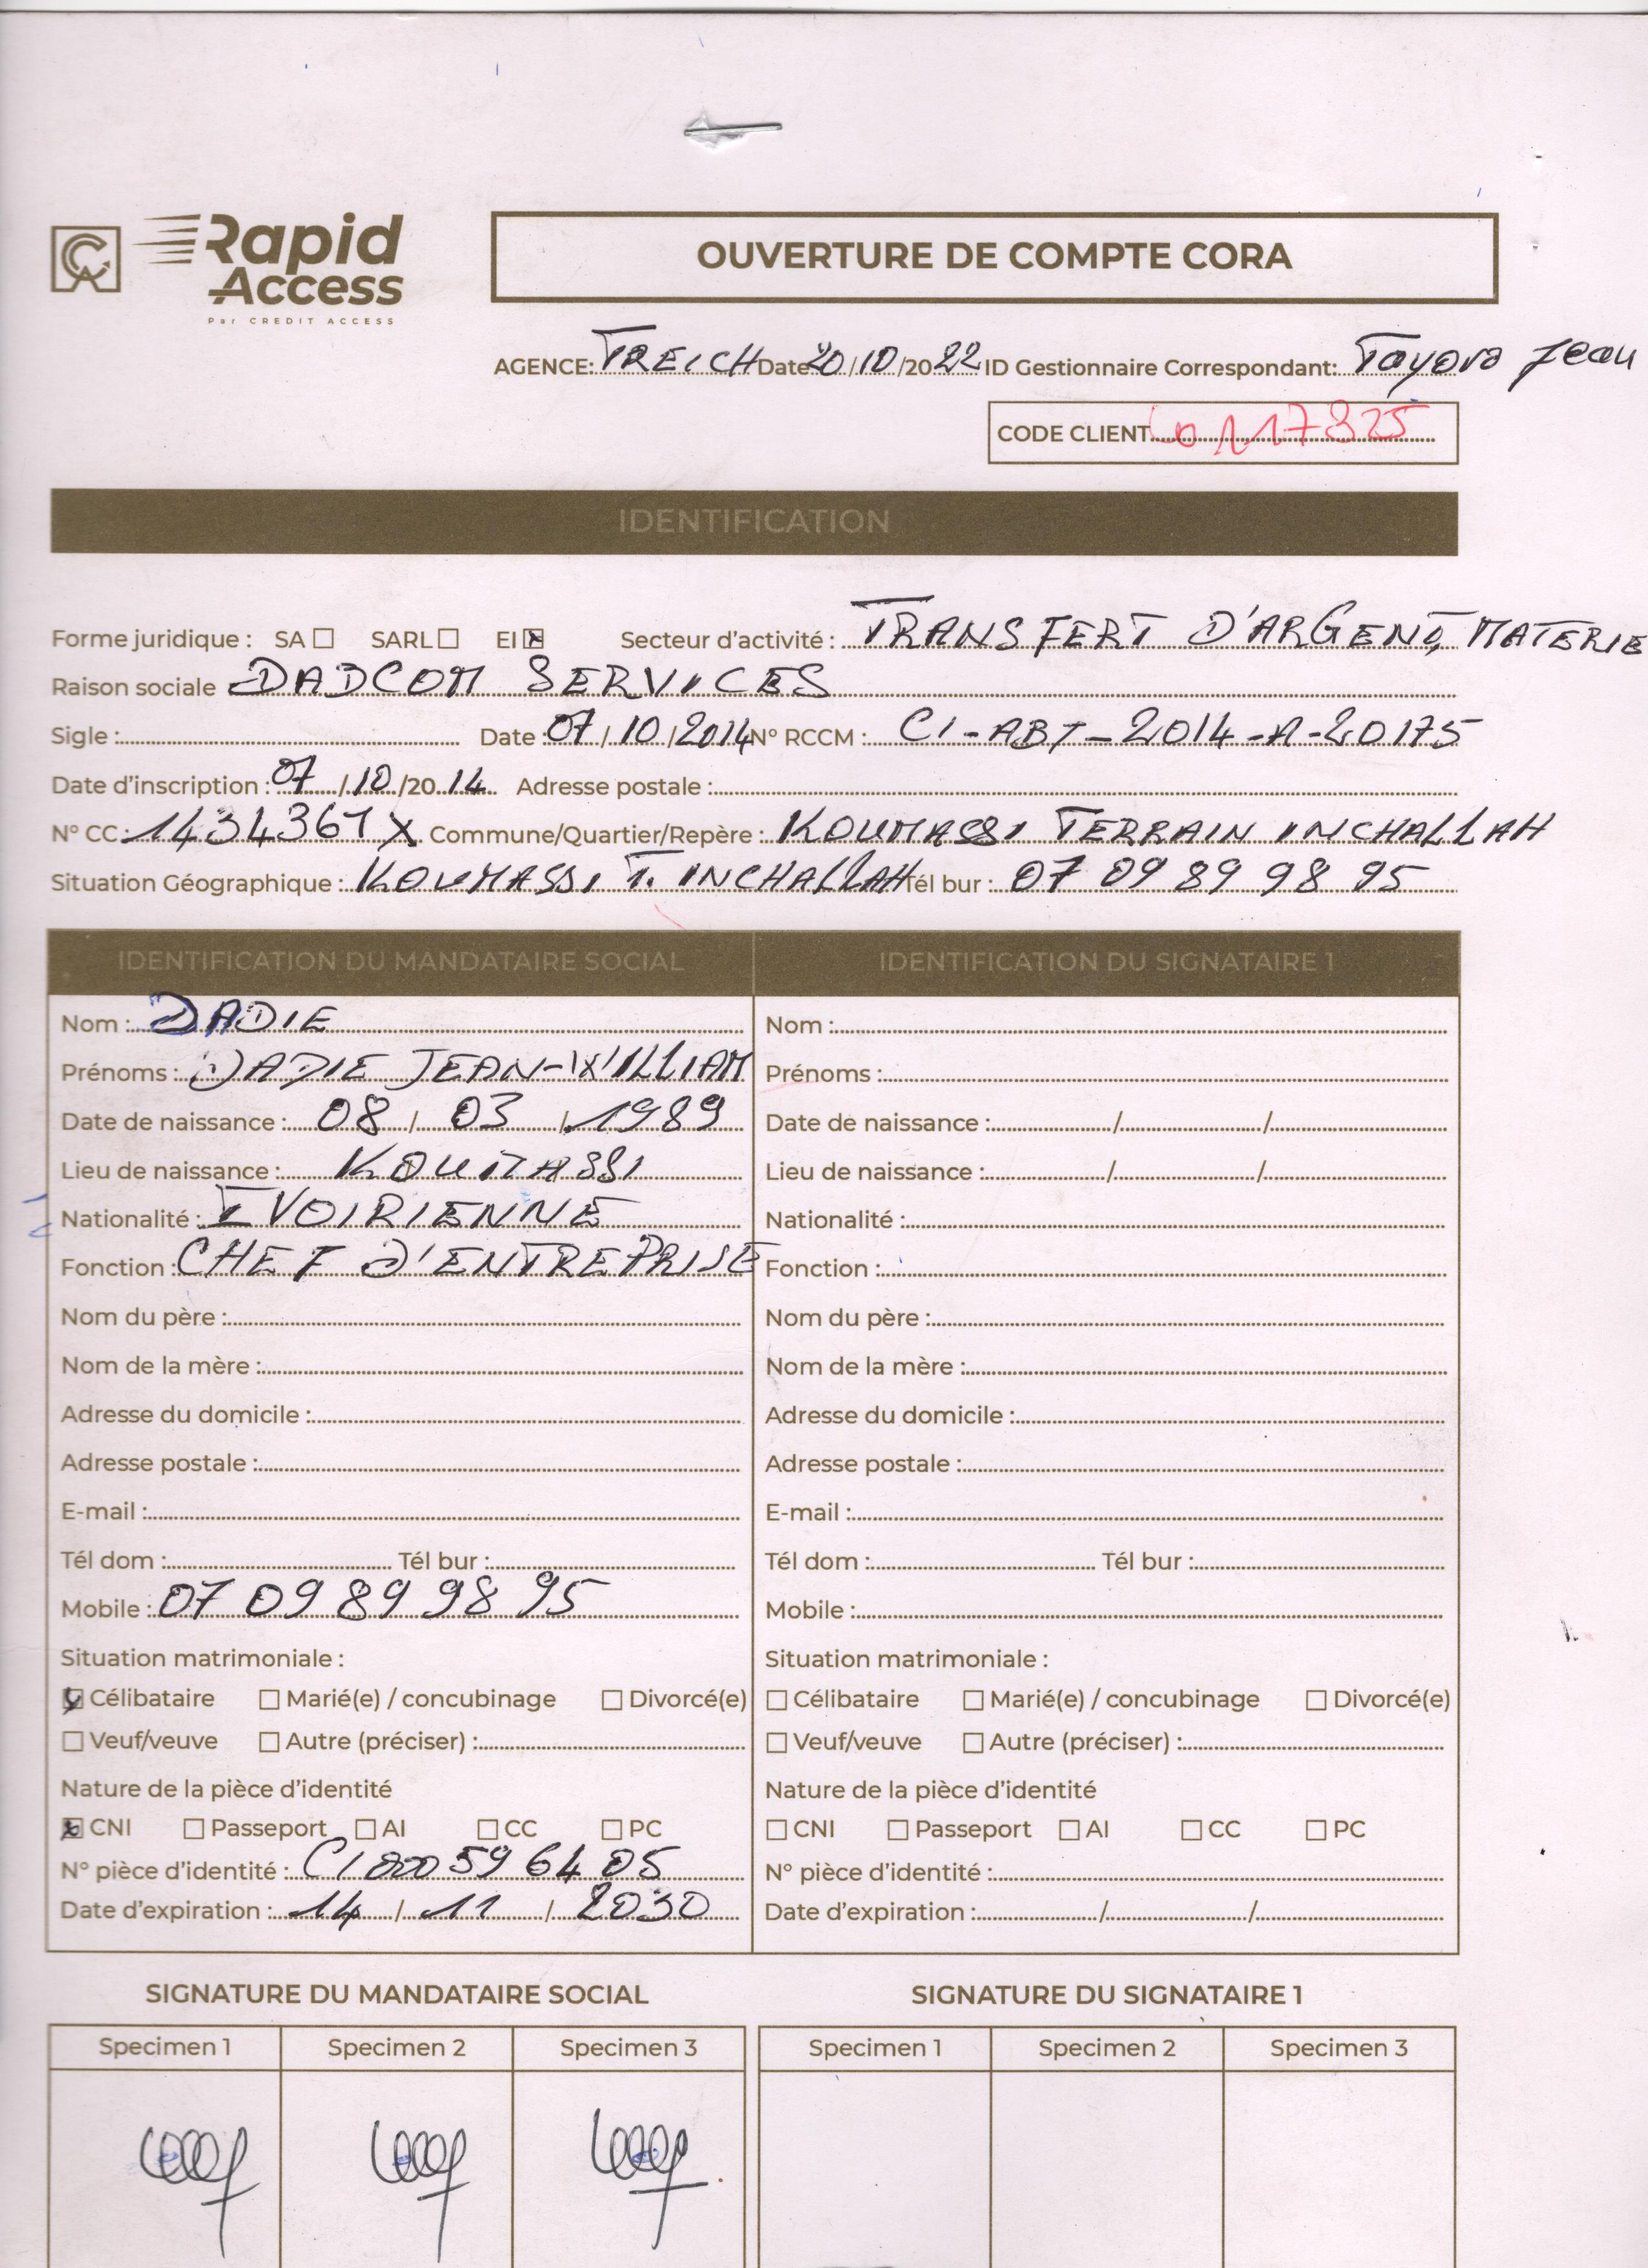 Rapid
Access
Par CREDIT ACCESS
OUVERTURE DE COMPTE CORA
AGENCE: TREICH Date 20/10/2022 ID Gestionnaire Correspondant: Tayoro Jean
CODE CLIENT 0117325
IDENTIFICATION
Forme juridique : SA SARL EI Secteur d'activité : TRANSFERT D'ARGENT, MATERIE
Raison sociale DADCOM SERVICES
Sigle : Date : 07/10/2014 N° RCCM : CI-ABJ-2014-A-20175
Date d'inscription : 07/10/2014 Adresse postale :
N° CC : 1434367 X Commune/Quartier/Repère : KOUMASSI TERRAIN INCHALLAH
Situation Géographique : KOUMASSI T. INCHALLAH Tél bur : 07 09 89 98 95
IDENTIFICATION DU MANDATAIRE SOCIAL IDENTIFICATION DU SIGNATAIRE 1
Nom : DADIE Nom :
Prénoms : DADIE JEAN-WILLIAM Prénoms :
Date de naissance : 08 / 03 / 1989 Date de naissance : / /
Lieu de naissance : KOUMASSI Lieu de naissance : / /
Nationalité : IVOIRIENNE Nationalité :
Fonction : CHEF D'ENTREPRISE Fonction :
Nom du père : Nom du père :
Nom de la mère : Nom de la mère :
Adresse du domicile : Adresse du domicile :
Adresse postale : Adresse postale :
E-mail : E-mail :
Tél dom : Tél bur : Tél dom : Tél bur :
Mobile : 07 09 89 98 95 Mobile :
Situation matrimoniale : Situation matrimoniale :
Célibataire Marié(e) / concubinage Divorcé(e) Célibataire Marié(e) / concubinage Divorcé(e)
Veuf/veuve Autre (préciser) : Veuf/veuve Autre (préciser) :
Nature de la pièce d'identité Nature de la pièce d'identité
CNI Passeport AI CC PC CNI Passeport AI CC PC
N° pièce d'identité : CI 000 59 64 05 N° pièce d'identité :
Date d'expiration : 14 / 11 / 2030 Date d'expiration : / /
SIGNATURE DU MANDATAIRE SOCIAL SIGNATURE DU SIGNATAIRE 1
Specimen 1 Specimen 2 Specimen 3 Specimen 1 Specimen 2 Specimen 3